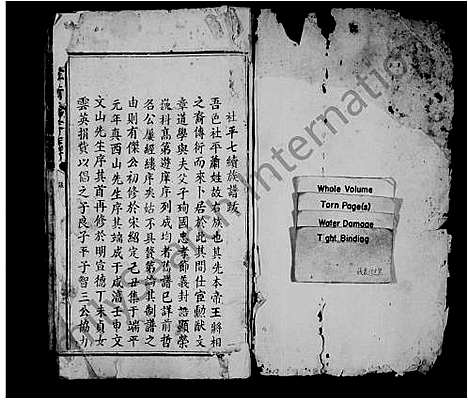 社平七續族譜跋
吾邑社平蕭姓故右族也其先本帝王將相
之裔傳衍而來卜居於此其間仕宦勳猷文
章道學與夫父子殉國忠孝節義封誥顯榮
科高第遊庠序列成均者舊譜已詳前哲
名公屢經總序矣姑不具贅第論其制譜之
由則有傑公初修於宋紹定己丑集于端平
元年真西山先生序其端成于咸淳壬申文
文山先生序其首再修於明宣德丁未貞女
雲英捐貲以倡之于良子平子智三公協力
Whole Volume
Torn Page(s)
Water Damage
Tight Binding